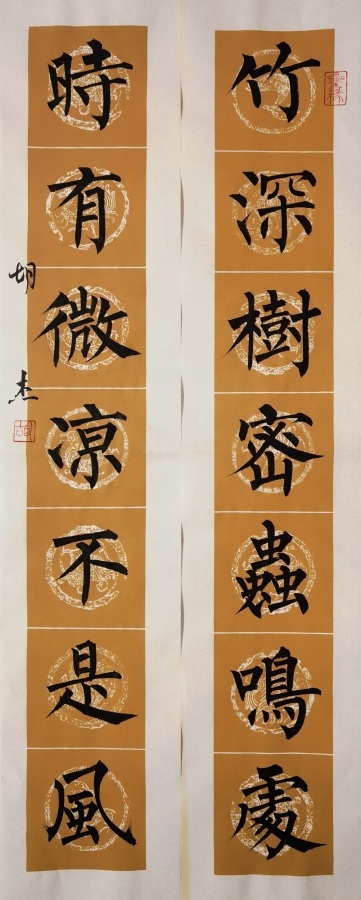 竹深樹密蟲鳴處
時有微涼不是風
胡杰